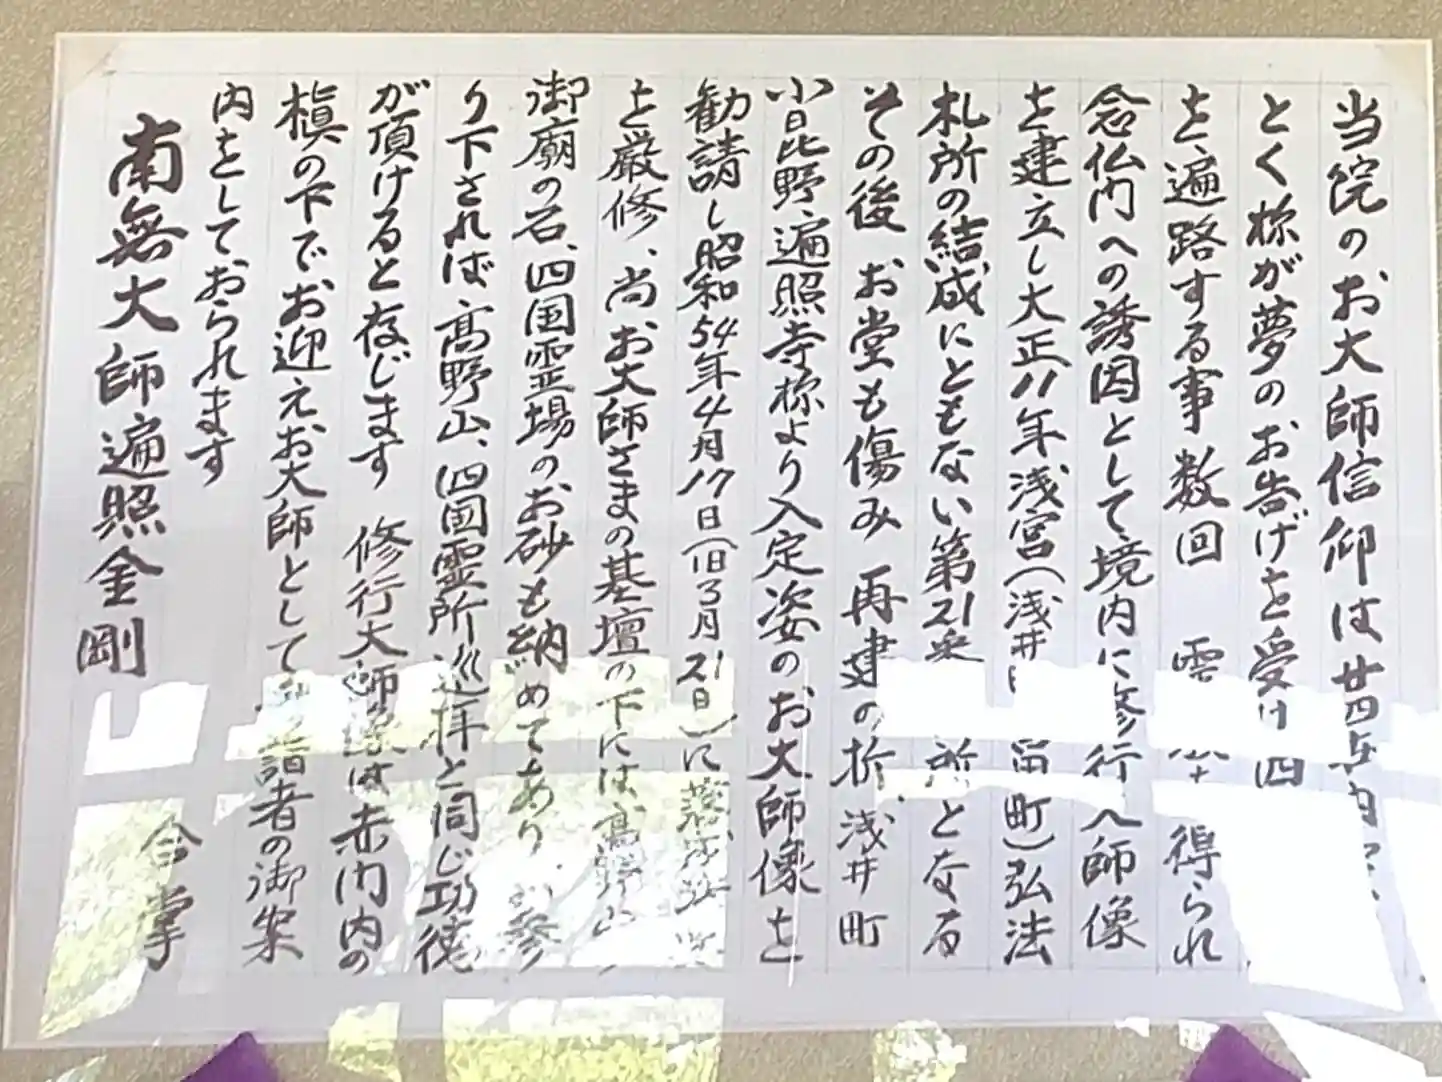 当院のお大師信仰は廿四
とく様が夢のお告げを受け四
を遍路する事数回 得られ
念仏門への誘因として境内に修行大師像
を建立し大正11年浅宮(浅井 町)弘法
札所の結成にともない第21番 所となる
その後お堂も傷み再建の折、浅井町
小日比野遍照寺様より入定姿のお大師像を
勧請し昭和54年4月17日(旧3月21日)に
を厳修、尚お大師さまの基壇の下には高野山
御廟の石、四国霊場のお砂も納めてあり お参
り下されば高野山、四国霊所巡拝と同じ功徳
が頂けると存じます 修行大師様は赤門内の
槇の下でお迎えお大師として 詣者の御案
内をしておられます
南無大師遍照金剛
合掌